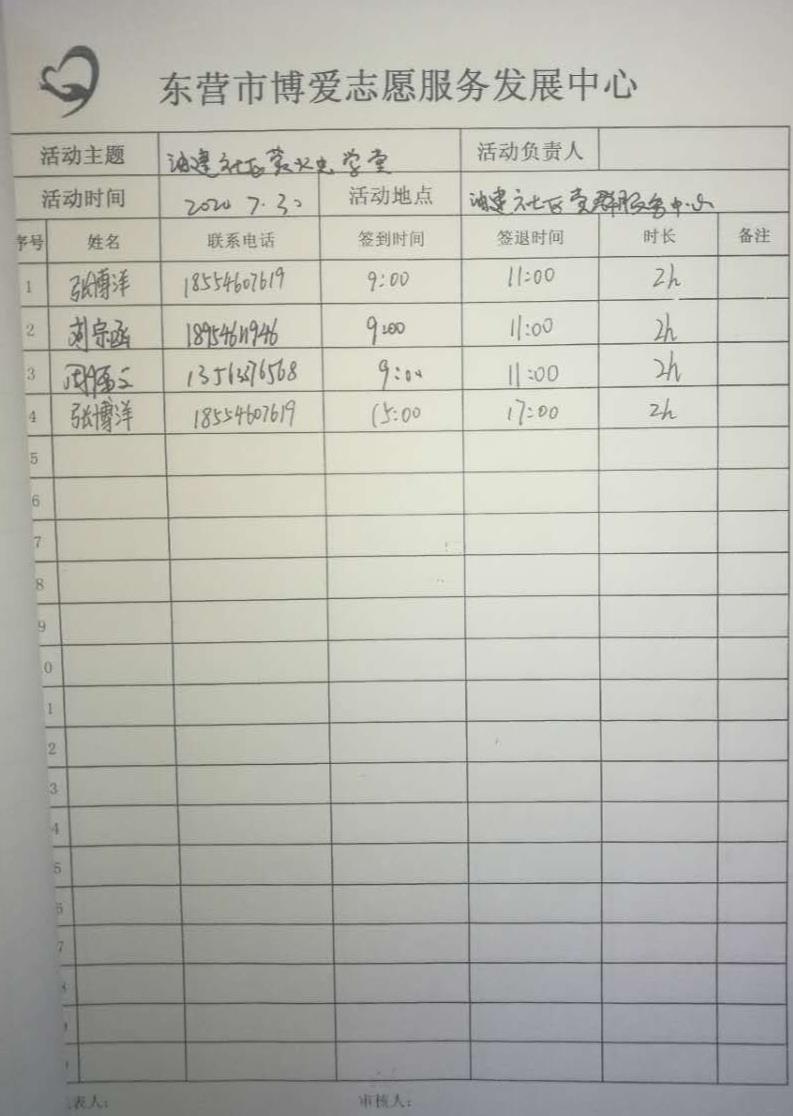 东营市博爱志愿服务发展中心
活动主题 油建社区萤火虫学堂 活动负责人
活动时间 2020 7.30 活动地点 油建社区党群服务中心
序号 姓名 联系电话 签到时间 签退时间 时长 备注
1 张博洋 18554607619 9:00 11:00 2h
2 刘宗函 18954611946 9:00 11:00 2h
3 9:00 11:00 2h
4 张博洋 18554607619 15:00 17:00 2h
5
6
7
8
9
0
1
2
3
4
5
6
7
表人: 审核人: